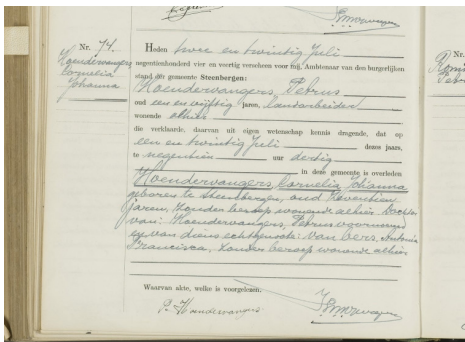 Nr. 74.
Hoendervangers
Cornelia
Johanna
Heden twee en twintig Juli
negentienhonderd vier en veertig verscheen voor mij, Ambtenaar van den burgerlijken
stand der gemeente Steenbergen:
Hoendervangers, Petrus
oud een en vijftig jaren, landarbeider
wonende alhier
die verklaarde, daarvan uit eigen wetenschap kennis dragende, dat op
een en twintig Juli dezes jaars,
te negentien uur dertig
in deze gemeente is overleden
Hoendervangers, Cornelia Johanna
geboren te Steenbergen, oud zeventien
jaren, zonder beroep wonende alhier. Dochter
van: Hoendervangers, Petrus voornoemd
en van diens echtgenoote: van Eers, Antonia
Francisca, zonder beroep wonende alhier
Waarvan akte, welke is voorgelezen.
P. Hoendervangers
Nr.